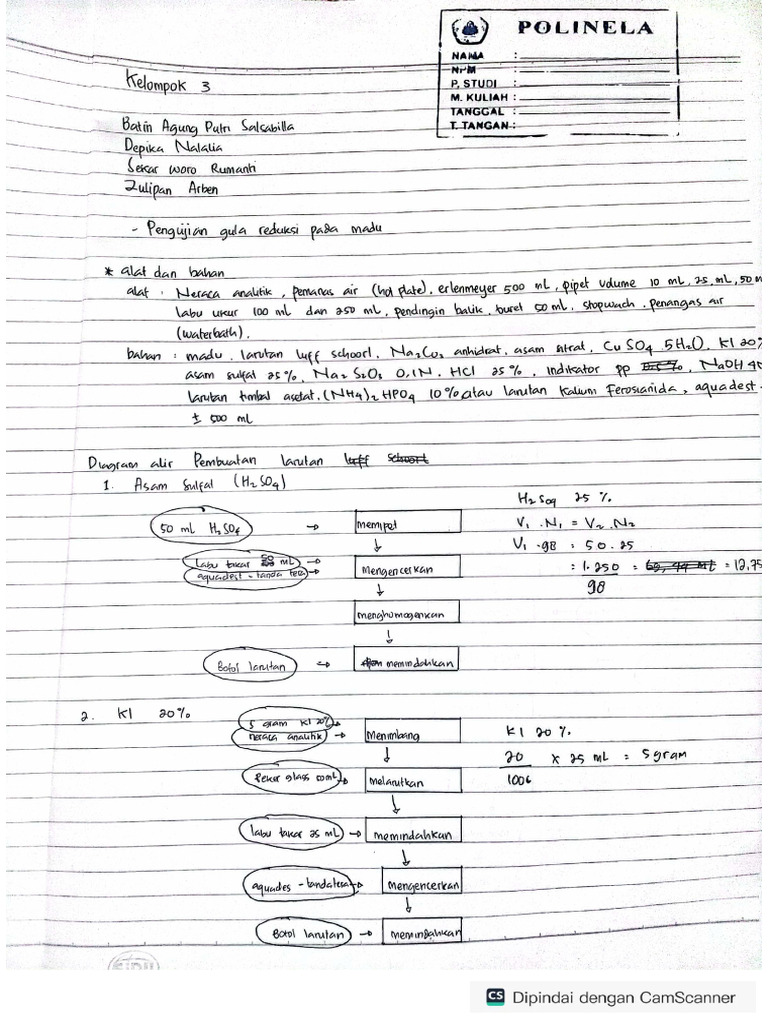 POLINELA
NAMA :
NPM
P. STUDI :
M. KULIAH :
TANGGAL :
T. TANGAN :
Kelompok 3
Batin Agung Putri Salsabilla
Depika Natalia
Sekar Woro Rumanti
Zulipan Arben
- Pengujian gula reduksi pada madu
* alat dan bahan
alat : Neraca analitik, pemanas air (hot plate), erlenmeyer 500 mL, pipet volume 10 mL, 25 mL, 50 m
labu ukur 100 mL dan 250 mL, pendingin balik, buret 50 mL, stopwach, penangas air
(waterbath).
bahan : madu, larutan luff schoorl, Na2Co3 anhidrat, asam sitrat, CuSO4 5H2O, KI 20%
asam sulfat 25%, Na2S2O3 0,1N, HCl 25%, indikator pp, NaOH 40
larutan timbal asetat, (NH4)2HPO4 10% atau larutan Kalium Ferosianida, aquadest
± 500 mL
Diagram alir Pembuatan larutan luff schoorl
1. Asam Sulfat (H2SO4)
H2SO4 25 %
50 mL H2SO4 → memipet
V1 . N1 = V2 . N2
V1 . 98 = 50 . 25
labu takar 50 mL →
aquadest - tanda tera → mengencerkan
= 1.250 = = 12,75
98
menghomogenkan
Botol larutan → memindahkan
2. KI 20%
5 gram KI 20% →
neraca analitik → Menimbang
KI 20 %.
20 x 25 mL = 5 gram
100
beker glass 50mL → melarutkan
labu takar 25 mL → memindahkan
aquades - tandatera → mengencerkan
Botol larutan → memindahkan
SIDU
CS Dipindai dengan CamScanner